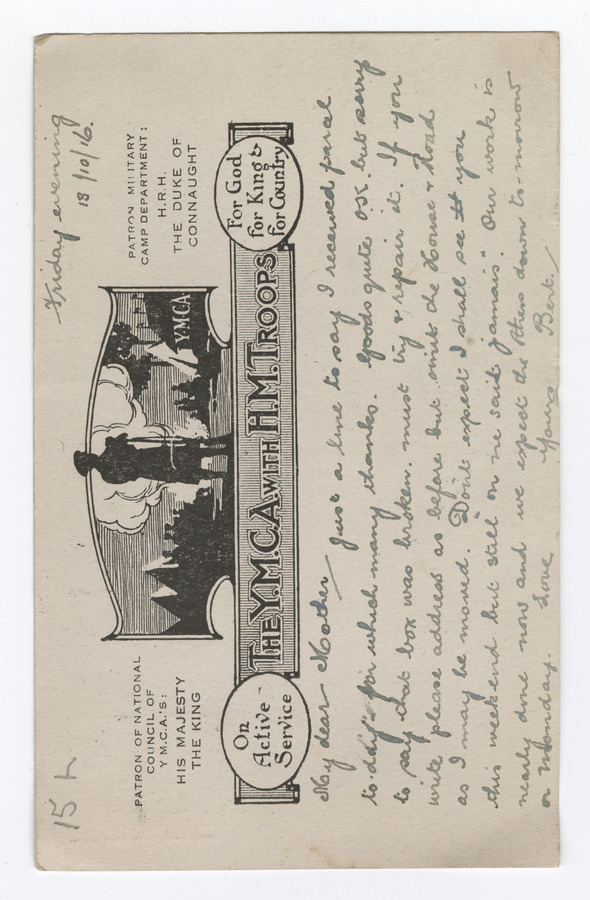 15
Friday evening
13/10/16.
PATRON OF NATIONAL
COUNCIL OF
Y.M.C.A.'S:
HIS MAJESTY
THE KING
Y.M.C.A
PATRON MILITARY
CAMP DEPARTMENT:
H.R.H.
THE DUKE OF
CONNAUGHT
On
Active
Service
THE Y.M.C.A. WITH H.M. TROOPS
For God
for King &
for Country
My dear Mother Just a line to say I received parcel
to-day for which many thanks. Goods quite OK. but sorry
to say that box was broken. must try & repair it. If you
write please address as before but omit the House & Road
as I may be moved. Don't expect I shall see you
this week end but still "on ne sait jamais." Our work is
nearly done now and we expect the others down to-morrow
or Monday. Love Yours Bert.